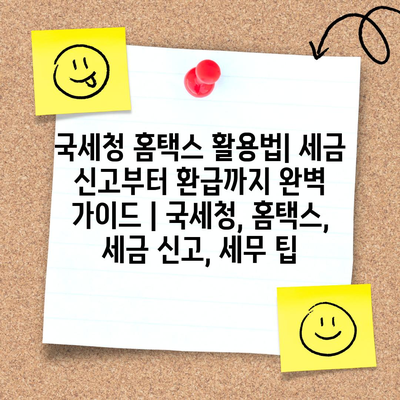 국세청 홈택스 활용법| 세금
신고부터 환급까지 완벽
가이드 | 국세청, 홈택스,
세금 신고, 세무 팁